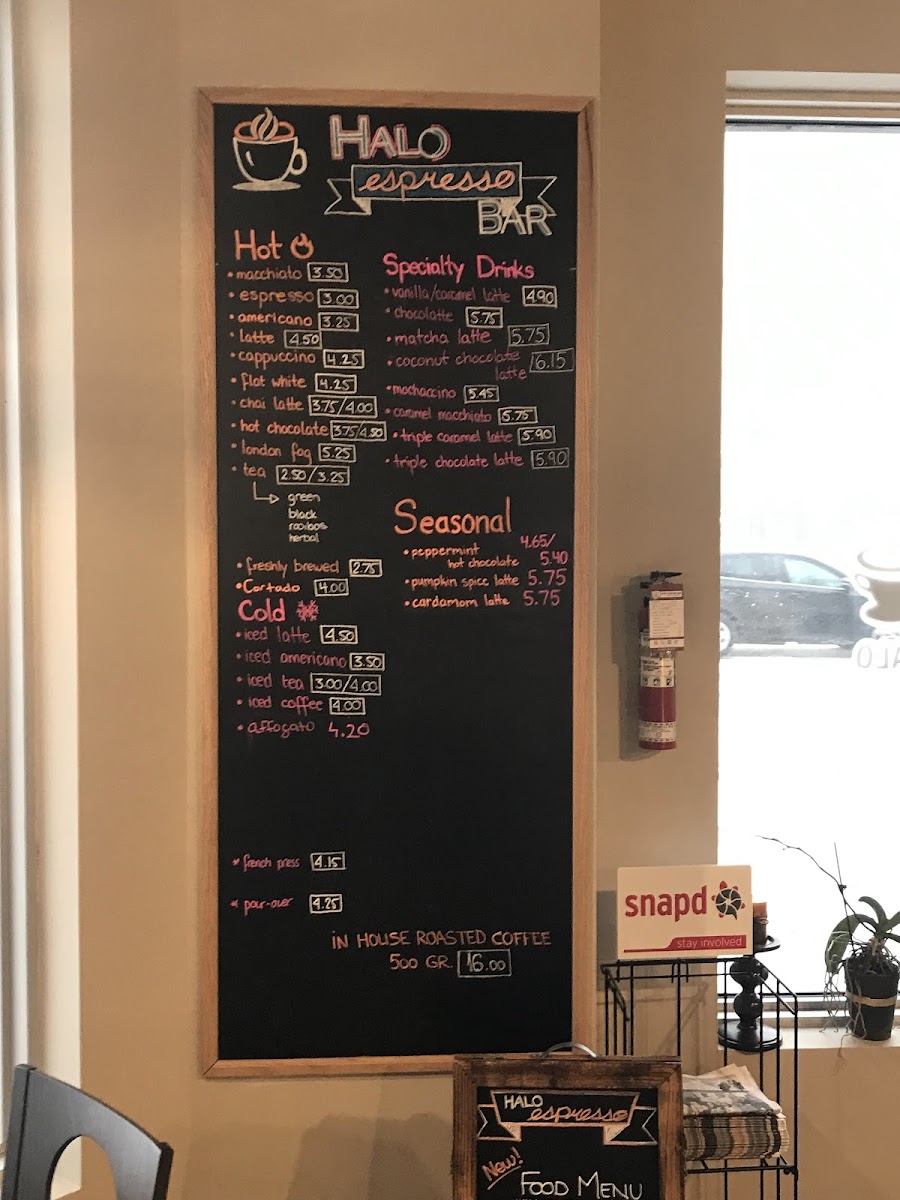 HALO
espresso
BAR
Hot
• macchiato 3.50
• espresso 3.00
• americano 3.25
• latte 4.50
• cappuccino 4.25
• flat white 4.25
• chai latte 3.75/4.00
• hot chocolate 3.75/4.50
• london fog 5.25
• tea 2.50/3.25
green
black
rooibos
herbal
• freshly brewed 2.75
• Cortado 4.00
Cold
• iced latte 4.50
• iced americano 3.50
• iced tea 3.00/4.00
• iced coffee 4.00
• affogato 4.20
Specialty Drinks
• vanilla/caramel latte 4.90
• chocolatte 5.75
• matcha latte 5.75
• coconut chocolate 6.15
latte
• mochaccino 5.45
• caramel macchiato 5.75
• triple caramel latte 5.90
• triple chocolate latte 5.90
Seasonal
• peppermint 4.65/
hot chocolate 5.40
• pumpkin spice latte 5.75
• cardamom latte 5.75
* french press 4.15
* pour-over 4.25
IN HOUSE ROASTED COFFEE
500 GR. 16.00
snapd
stay involved
HALO
espresso
New!
FOOD MENU